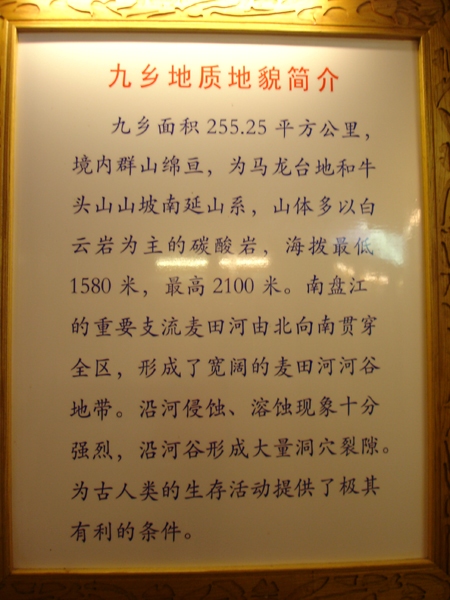 九乡地质地貌简介
九乡面积 255.25 平方公里，
境内群山绵亘，为马龙台地和牛
头山山坡南延山系，山体多以白
云岩为主的碳酸岩，海拨最低
1580 米，最高 2100 米。南盘江
的重要支流麦田河由北向南贯穿
全区，形成了宽阔的麦田河河谷
地带。沿河侵蚀、溶蚀现象十分
强烈，沿河谷形成大量洞穴裂隙。
为古人类的生存活动提供了极其
有利的条件。